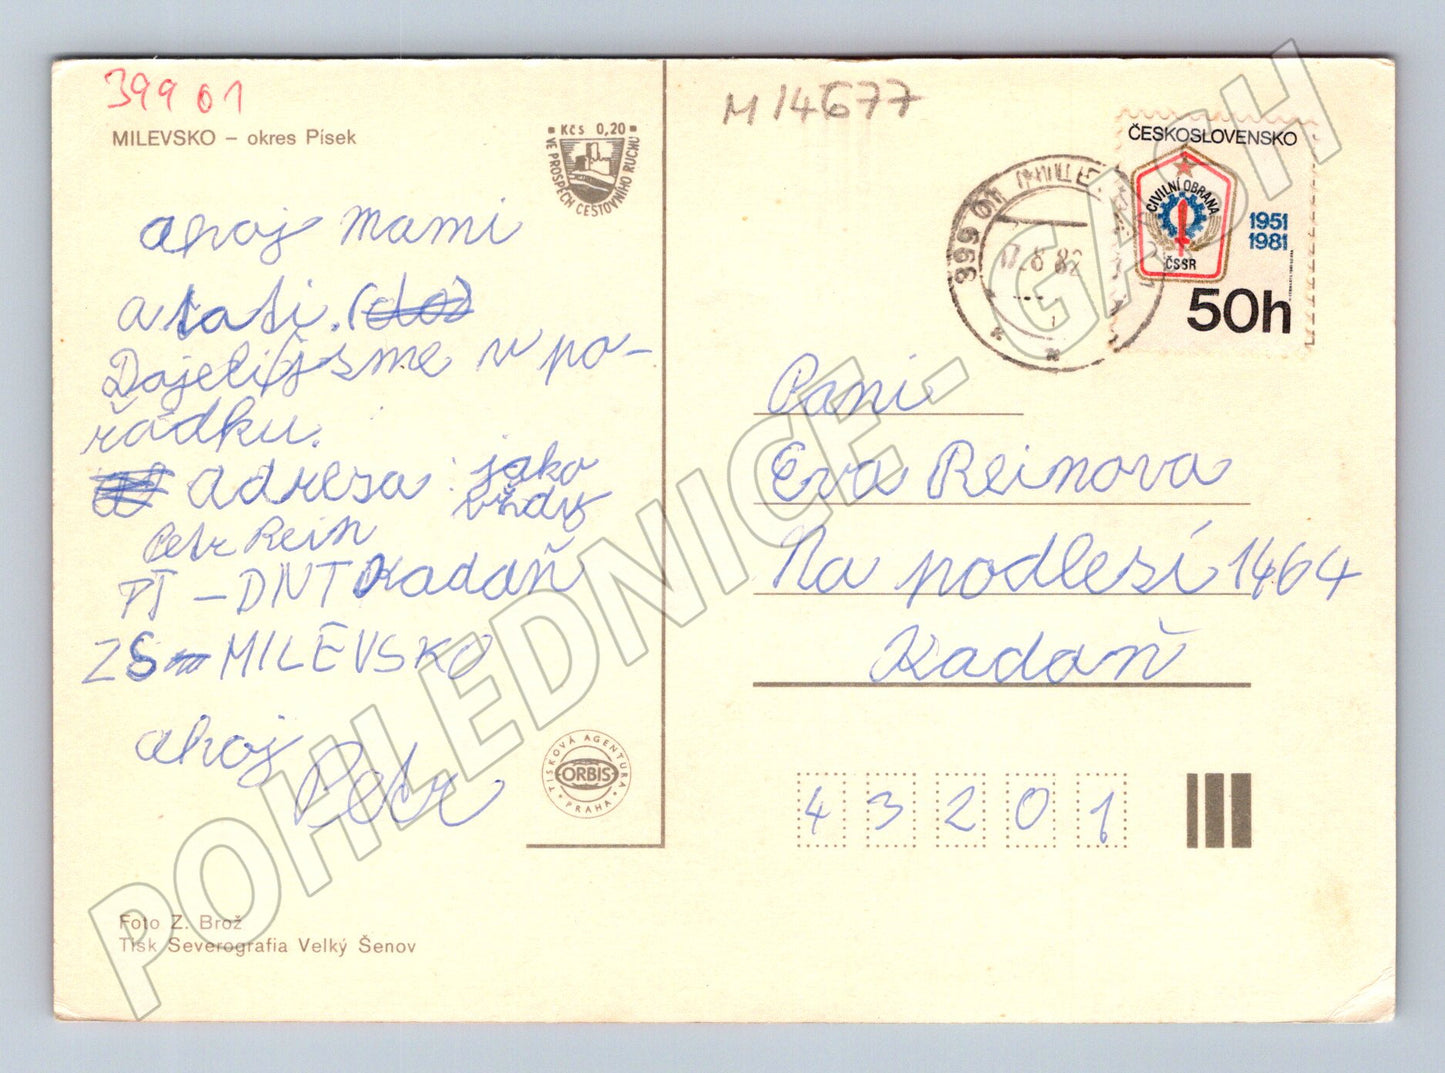 39901
MILEVSKO – okres Písek
Kčs 0,20
VE PROSPĚCH CESTOVNÍHO RUCHU
ahoj Mami
a tati.
Dojeli jsme v po-
řádku.
Adresa: jako
vždy
Petr Rein
PT – DNT Kadaň
ZS – MILEVSKO
ahoj
Petr
TISKOVÁ AGENTURA
ORBIS
PRAHA
Foto Z. Brož
Tisk Severografia Velký Šenov
M 14677
399 01 MILEVSKO
ČESKOSLOVENSKO
CIVILNÍ OBRANA
ČSSR
1951
1981
50h
Pani
Eva Reinova
Na podlesí 1464
Kadaň
43201
POHLEDNICE - GASH